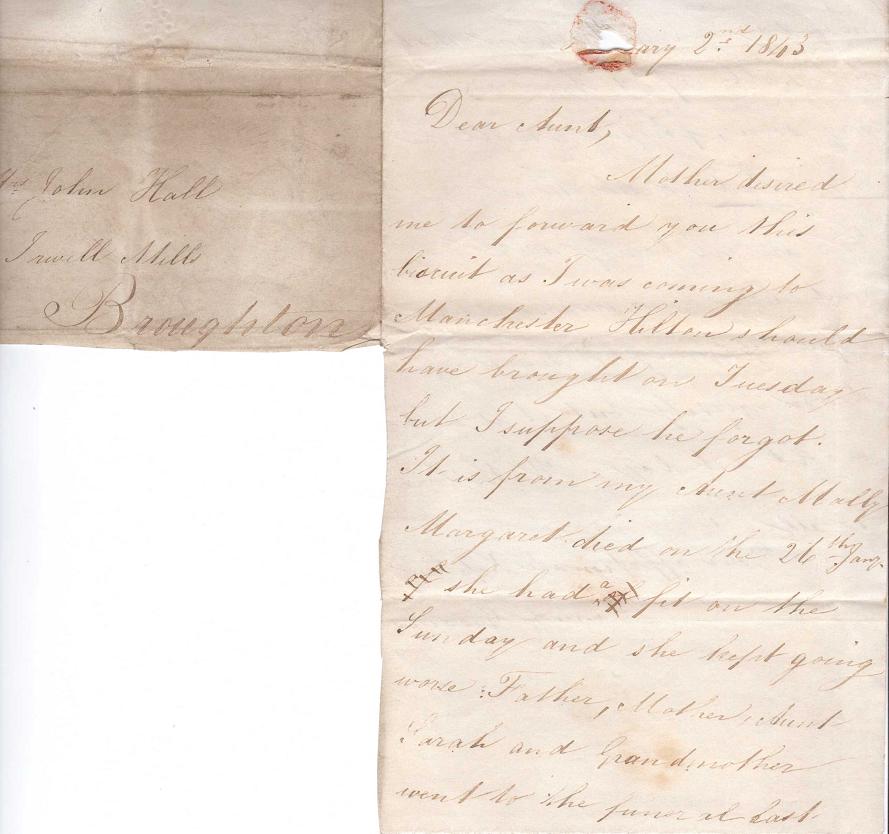 Mrs John Hall
Irwell Mills
Broughton
ary 2nd 1843
Dear Aunt,
Mother desired
me to forward you this
biscuit as I was coming to
Manchester Hilton should
have brought on Tuesday
but I suppose he forgot.
It is from my Aunt Mally
Margaret died on the 26th Jany.
she had a fit on the
Sunday and she kept going
worse Father, Mother, Aunt
Sarah and Grandmother
went to the funeral Last